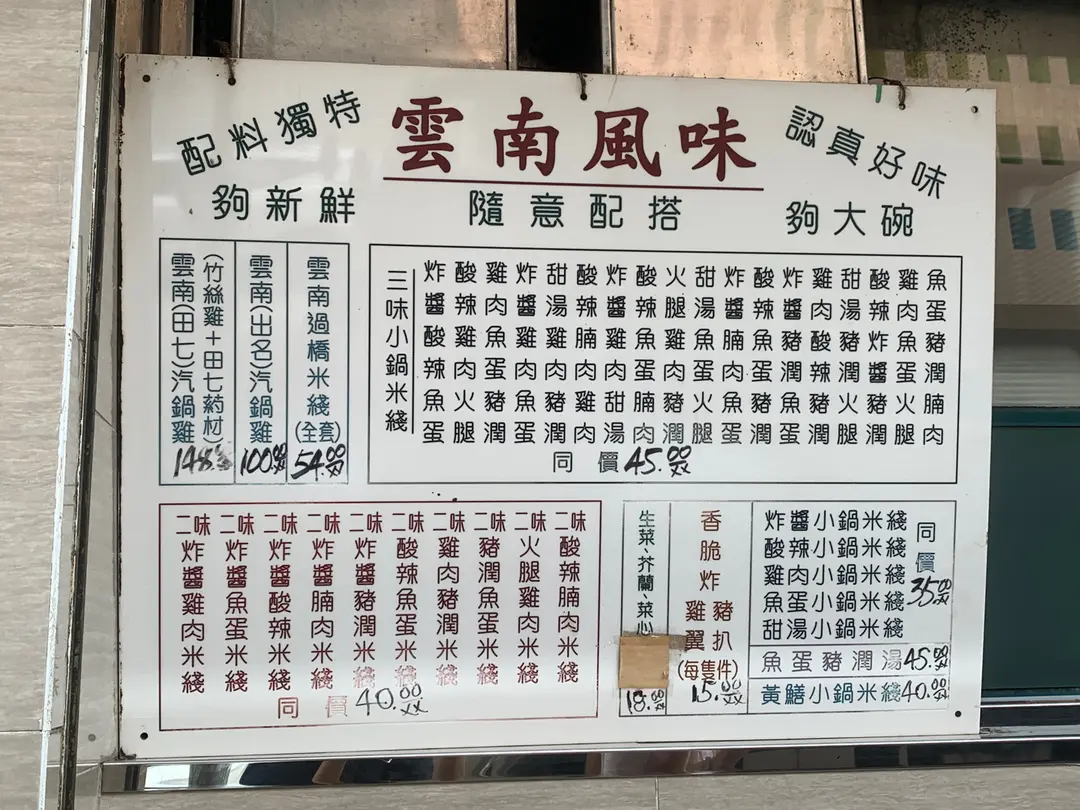 配料獨特
夠新鮮
雲南風味
隨意配搭
認真好味
夠大碗
雲南(田七)汽鍋雞
(竹絲雞+田七葯材)
148.
雲南(出名)汽鍋雞
100.00
雲南過橋米綫
(全套)
54.00
三味小鍋米綫
炸醬酸辣魚蛋
酸辣雞肉火腿
雞肉魚蛋豬潤
炸醬雞肉魚蛋
甜湯雞肉豬潤
酸辣腩肉雞肉
炸醬雞肉甜湯
酸辣魚蛋腩肉
火腿雞肉豬潤
甜湯魚蛋火腿
炸醬腩肉魚蛋
酸辣魚蛋豬潤
炸醬豬潤魚蛋
雞肉酸辣豬潤
甜湯豬潤火腿
酸辣炸醬豬潤
雞肉魚蛋火腿
魚蛋豬潤腩肉
同價45.00
二味炸醬雞肉米綫
二味炸醬魚蛋米綫
二味炸醬酸辣米綫
二味炸醬腩肉米綫
二味炸醬豬潤米綫
二味酸辣魚蛋米綫
二味雞肉豬潤米綫
二味豬潤魚蛋米綫
二味火腿雞肉米綫
二味酸辣腩肉米綫
同價40.00
生菜、芥蘭、菜心
18.00
香脆炸
雞翼
豬扒
(每隻件)
15.00
炸醬小鍋米綫
酸辣小鍋米綫
雞肉小鍋米綫
魚蛋小鍋米綫
甜湯小鍋米綫
同價35.00
魚蛋豬潤湯45.00
黃鱔小鍋米綫40.00